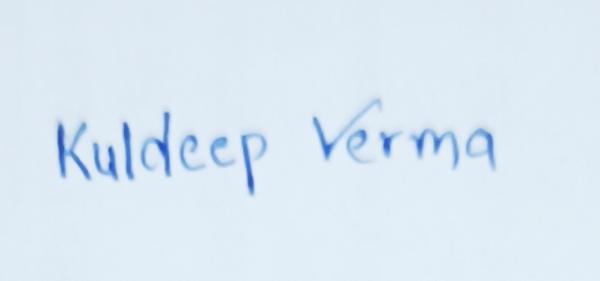 Kuldeep Verma